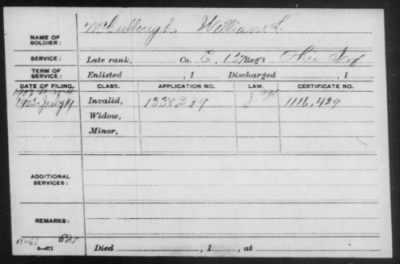 NAME OF SOLDIER: McCullough, William L.
SERVICE: Late rank, Co. E, Reg't Ohio Inf
TERM OF SERVICE: Enlisted , 1 Discharged , 1
DATE OF FILING. CLASS. APPLICATION NO. LAW. CERTIFICATE NO.
Invalid, 1338289 1116,429
Widow,
Minor,
ADDITIONAL SERVICES:
REMARKS:
Died , 1 , at